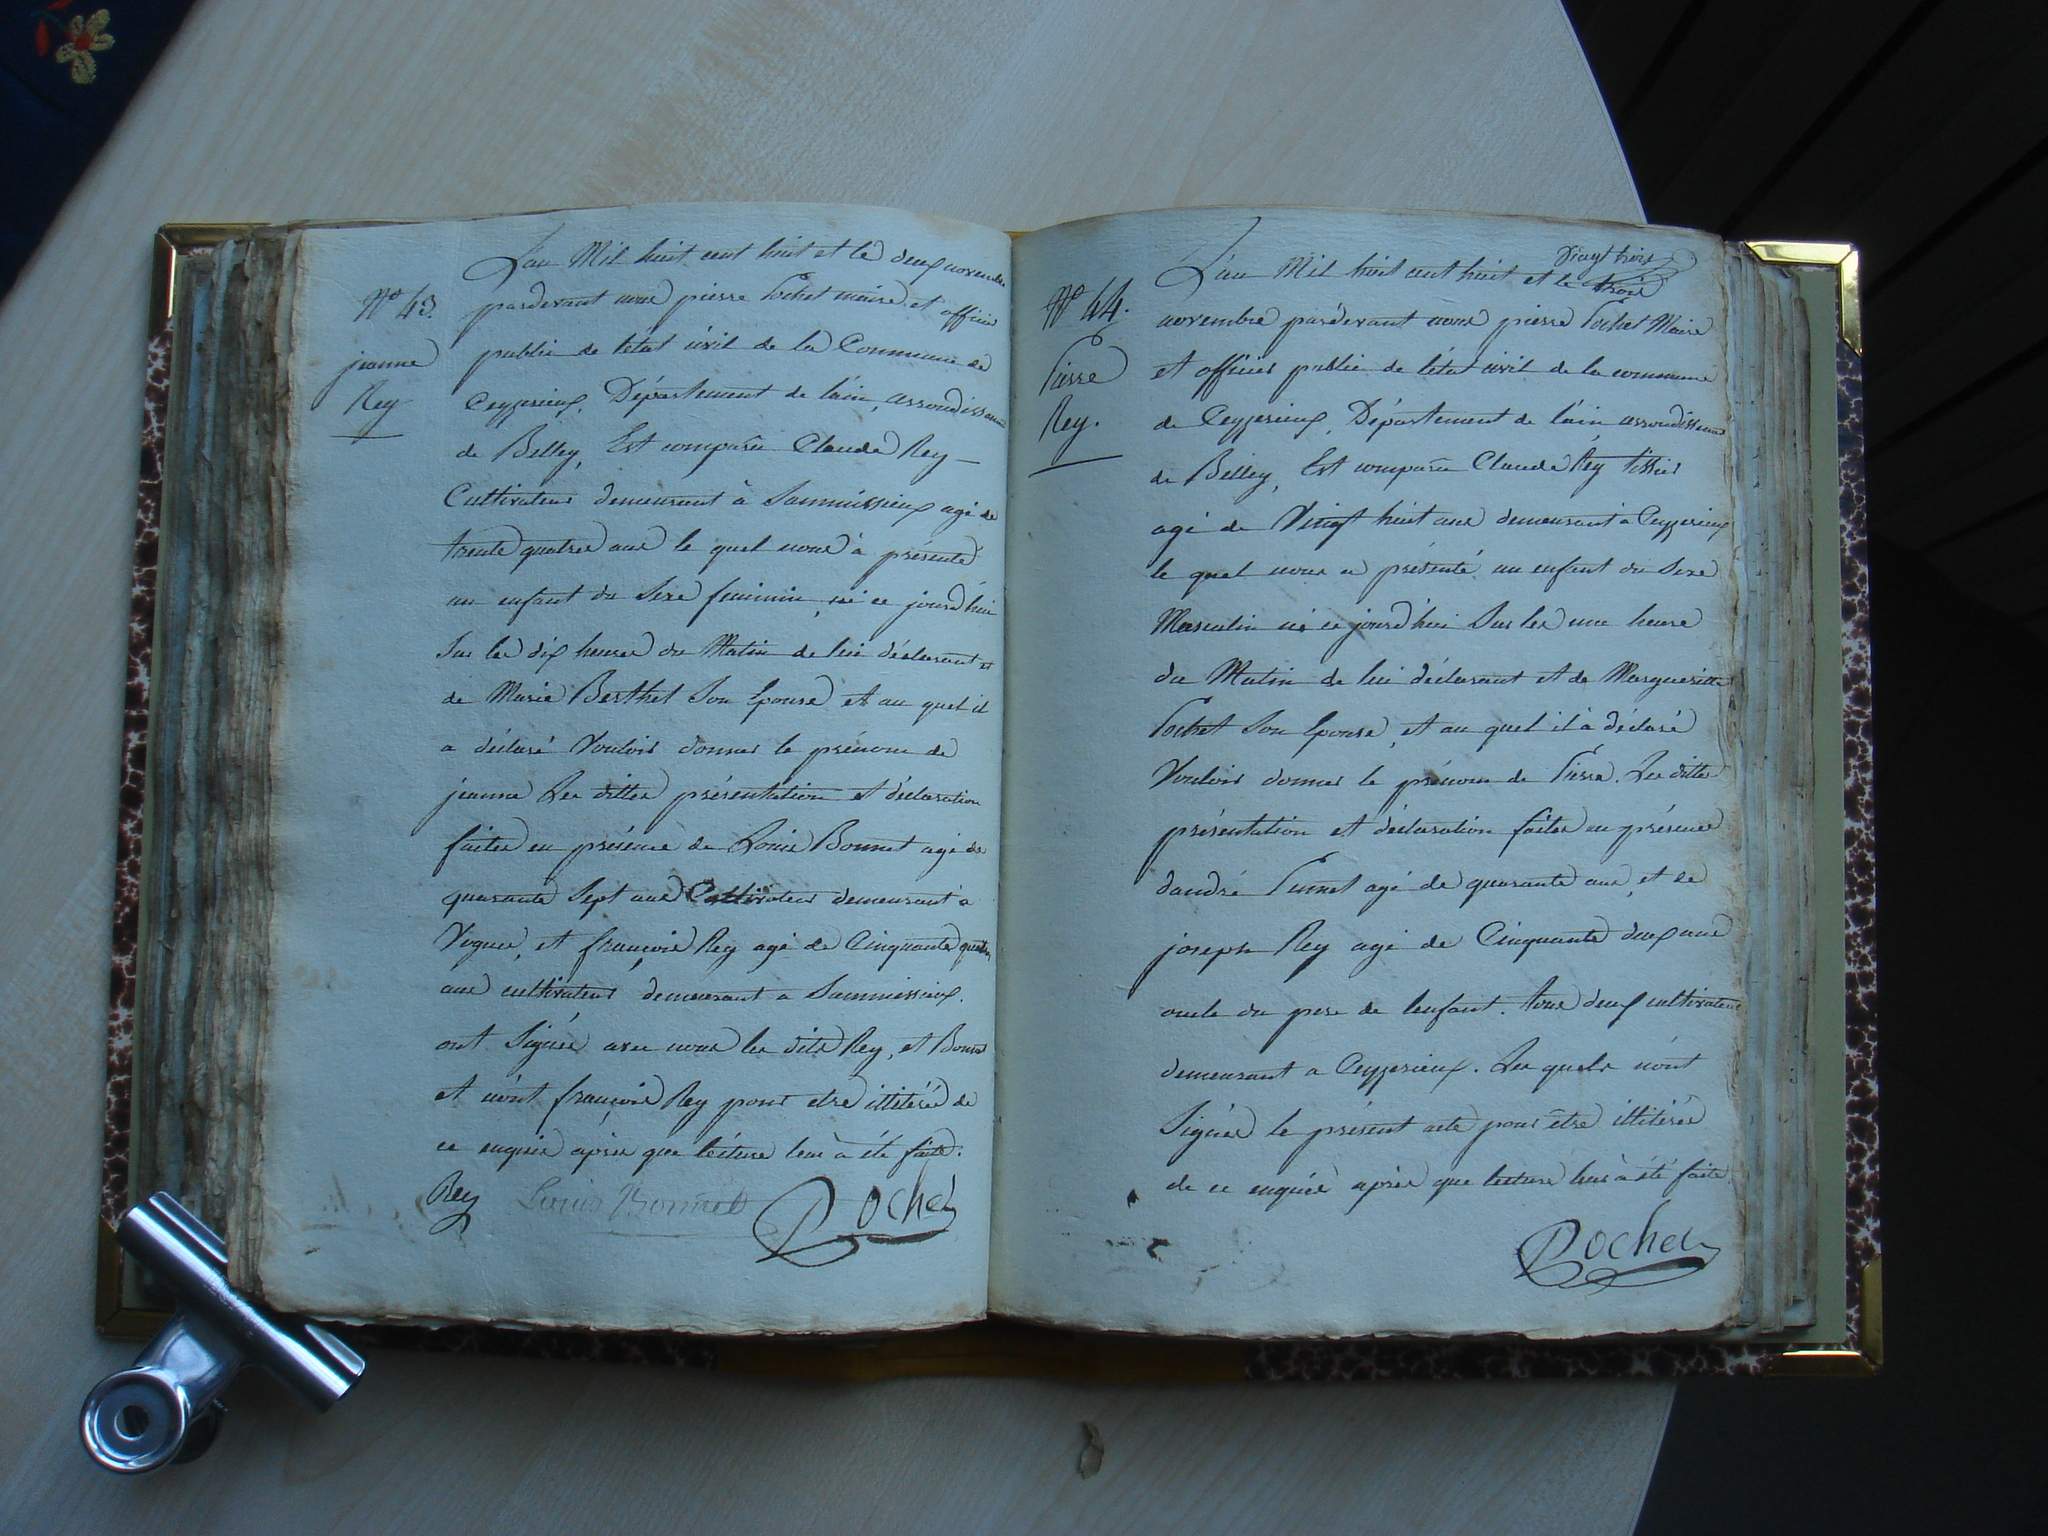 L'an Mil huit cent huit et le deux novembre
N° 43.
pardevant nous pierre Pochet maire et officier
public de l'etat civil de la Commune de
jeanne
Rey
Ceyzerieux, Département de l'ain, arrondissement
de Belley, Est comparu Claude Rey
Cultivateur demeurant à agé de
trente quatre ans le quel nous à présenté
un enfant du Sexe feminin, né ce jourd'hui
Sur les dix heures du Matin de lui déclarant et
de Marie Berthet Son Epouse et au quel il
a déclaré Vouloir donner le prénom de
jeanne Les dittes présentation et déclaration
faites en présence de Louis Bonnet agé de
quarante Sept ans Cultivateur demeurant à
et françois Rey agé de Cinquante quatre
ans cultivateur demeurant a
ont Signés avec nous les dits Rey, et Bonnet
et n'ont françois Rey pour etre illitéré de
ce enquis après que lécture leur à été faite.
Rey Louis Bonnet Pochet
Vingt trois
L'an Mil huit cent huit et le trois
N° 44.
novembre pardevant nous pierre Pochet Maire
Pierre
Rey.
et officier public de l'état civil de la commune
de Ceyzerieux, Département de l'ain, arrondissement
de Belley, Est comparu Claude Rey tissier
agé de Vingt huit ans demeurant a Ceyzerieux
le quel nous a présenté un enfant du Sexe
Masculin né ce jourd'hui Sur les une heure
du Matin de lui déclarant et de Margueritte
Pochet Son Epouse, et au quel il à déclaré
Vouloir donner le prénom de Pierre. Les dittes
présentation et déclaration faites en présence
d'andré agé de quarante ans, et de
joseph Rey agé de Cinquante deux ans
oncle du pere de l'enfant. tous deux cultivateurs
demeurant a Ceyzerieux. Les quels n'ont
Signés le présent acte pour être illitérés
de ce enquis après que lecture leur à été faite
Pochet